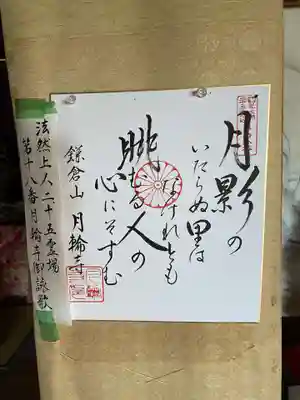 月影の
いたらぬ里は
なけれども
眺むる人の
心にそすむ
鎌倉山 月輪寺
法然上人二十五霊場
第十八番月輪寺御詠歌